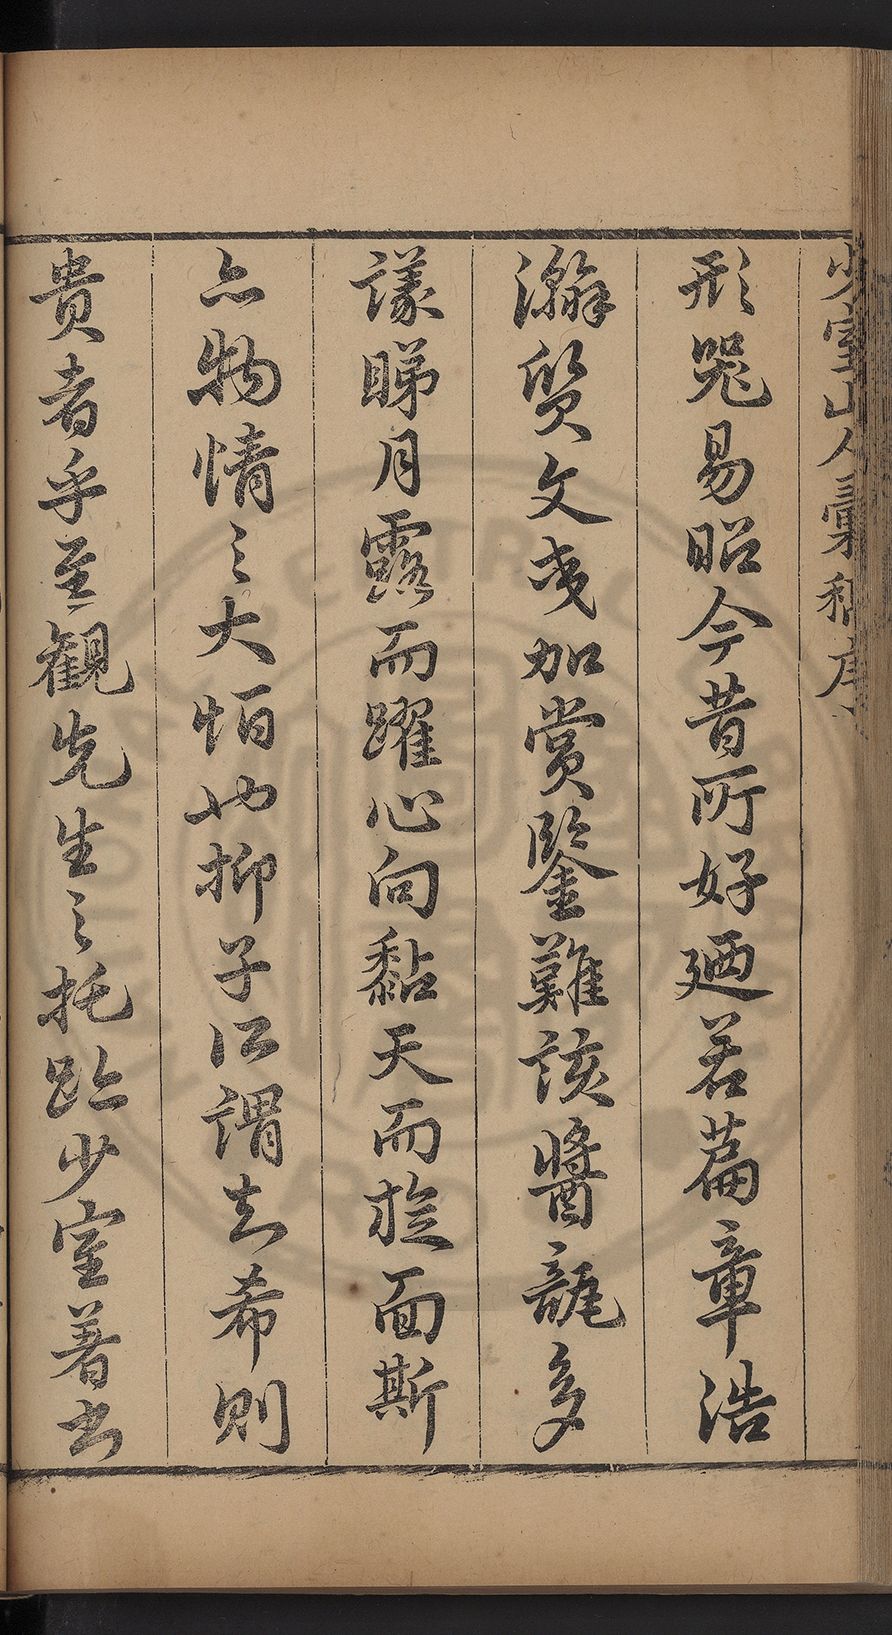 少室山人彙稿序
形器易昭今昔所好廼若篇章浩
瀚質文夷加賞鑒難該醬瓿多
議睇月露而躍心向黏天而旋面斯
亦物情之大怕也抑子江謂知希則
贵者乎至観先生之托跡少室著书